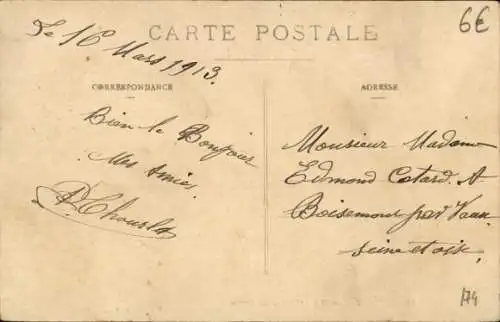 6€
CARTE POSTALE
Le 16 Mars 1913.
CORRESPONDANCE
Bien le Bonjour
Mes Amies
ADRESSE
Monsieur Madame
Edmond Cotard. A
Boisemont par Vaux
seine et oise.
174